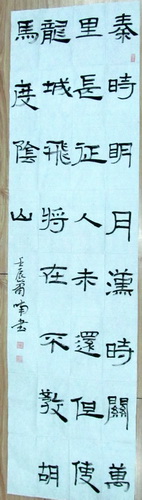 秦時明月漢時關萬
里長征人未還但使
龍城飛將在不教胡
馬度陰山
壬辰書